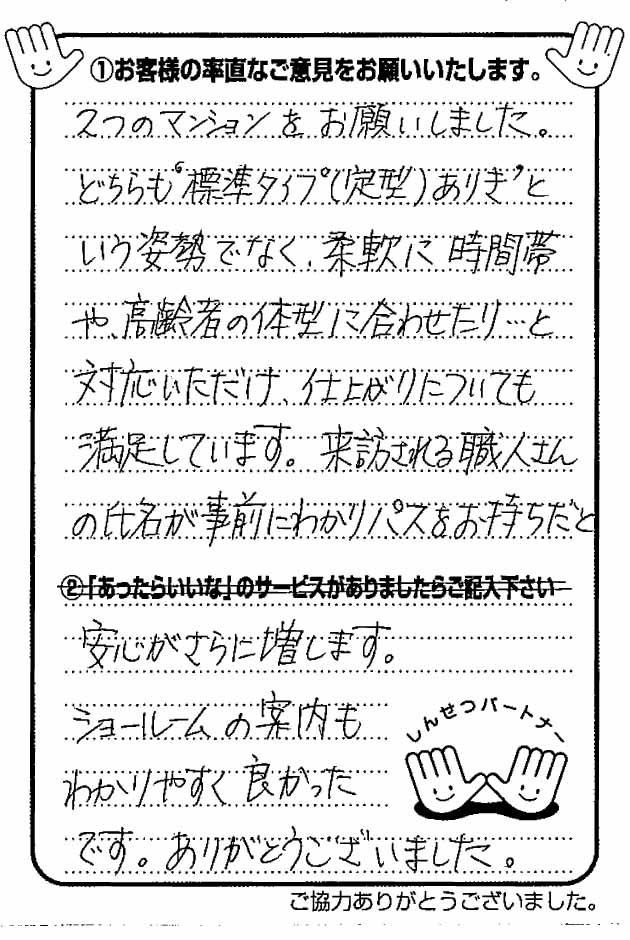 ①お客様の率直なご意見をお願いいたします。
2つのマンションをお願いしました。
どちらも“標準タイプ(定型)ありき”と
いう姿勢でなく、柔軟に時間帯
や、高齢者の体型に合わせたリ…と
対応いただけ、仕上がりについても
満足しています。来訪される職人さん
の氏名が事前にわかりパスをお持ちだと
②「あったらいいな」のサービスがありましたらご記入下さい
安心がさらに増します。
ショールームの案内も
わかりやすく良かった
です。ありがとうございました。
しんせつパートナー
ご協力ありがとうございました。